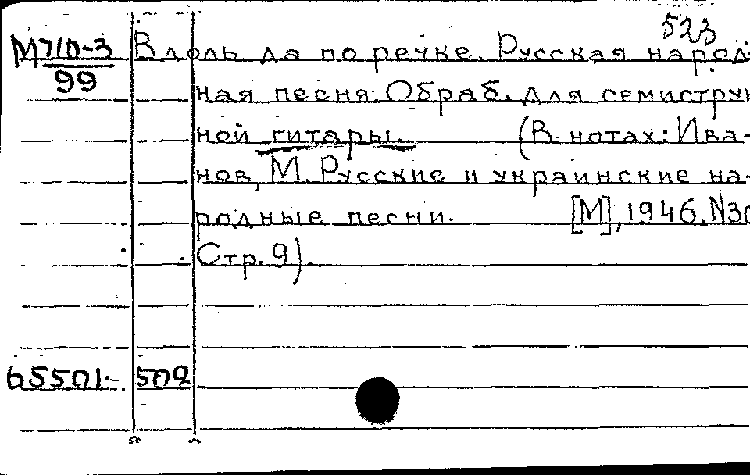 523
М710-3 Вдоль да по речке. Русская народ-
99 ная песня. Обраб. для семиструн
ной гитары. (В нотах: Ива-
нов, М. Русские и украинские на-
родные песни. [М], 1946. N30
Стр. 9).
65501 502